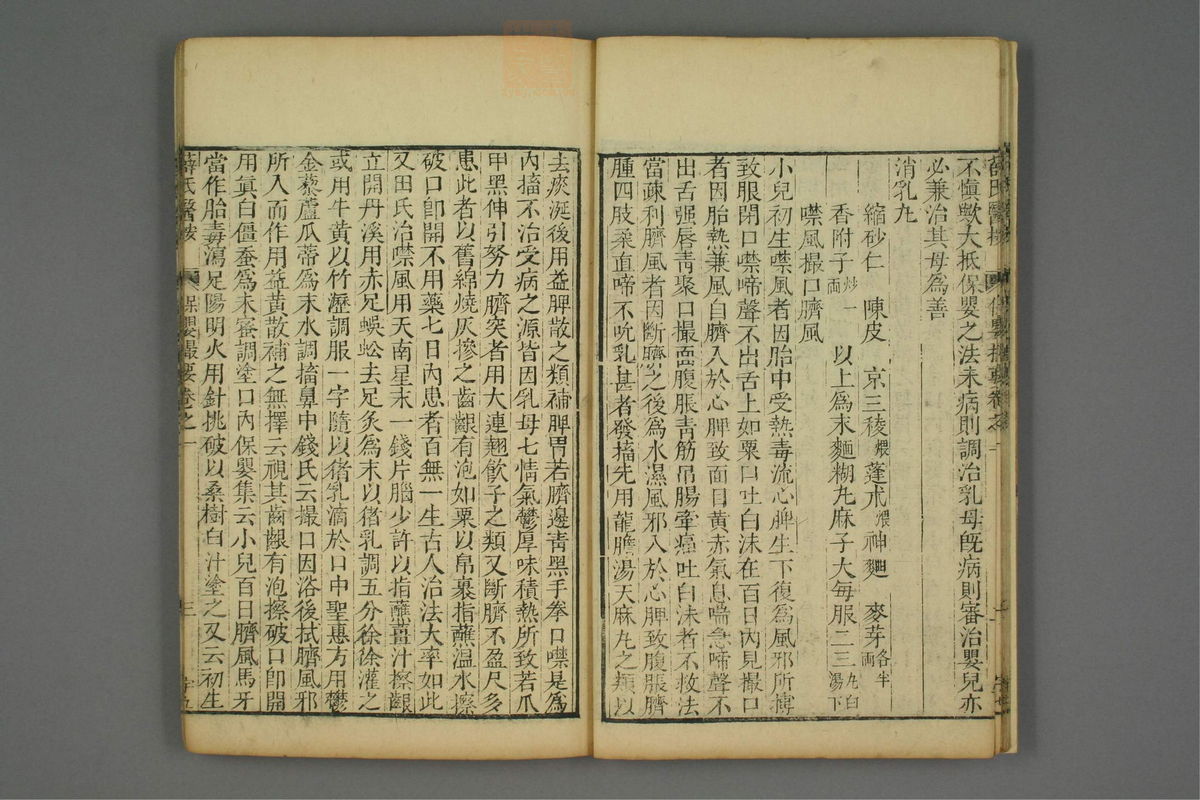 不愼歟大抵保嬰之法未病則調治乳母旣病則審治嬰兒亦
必兼治其母爲善
消乳丸
縮砂仁 陳皮 京三稜煨 蓬朮煨 神麯 麥芽各半两
香附子炒一两 以上爲末麵糊丸麻子大每服二三十丸白湯下
噤風撮口臍風
小兒初生噤風者因胎中受熱毒流心脾生下復爲風邪所搏
致眼閉口噤啼聲不出舌上如粟口吐白沫在百日內見撮口
者因胎熱兼風自臍入於心脾致面目黃赤氣息喘急啼聲不
出舌强唇靑聚口撮面腹脹靑筋吊腸牽痛吐白沫者不救法
當疎利臍風者因斷臍之後爲水濕風邪入於心脾致腹脹臍
腫四肢柔直啼不吮乳甚者發搐先用龍膽湯天麻丸之類以
去痰涎後用益脾散之類補脾胃若臍邊靑黑手拳口噤是爲
內搐不治受病之源皆因乳母七情氣鬱厚味積熱所致若爪
甲黑伸引努力臍突者用大連翹飮子之類又斷臍不盈尺多
患此者以舊綿燒灰摻之齒齦有泡如粟以帛裹指蘸温水擦
破口卽開不用藥七日內患者百無一生古人治法大率如此
又田氏治噤風用天南星末一錢片腦少許以指蘸薑汁擦齦
立開丹溪用赤足蜈蚣去足炙爲末以猪乳調五分徐徐灌之
或用牛黃以竹瀝調服一字隨以猪乳滴於口中聖惠方用鬱
金藜蘆瓜蒂爲末水調搐鼻中錢氏云撮口因浴後拭臍風邪
所入而作用益黃散補之無擇云視其齒齦有泡擦破口卽開
用眞白僵蚕爲末蜜調塗口內保嬰集云小兒百日臍風馬牙
當作胎毒瀉足陽明火用針挑破以桑樹白汁塗之又云初生
薛氏醫按 保嬰撮要卷之一 三